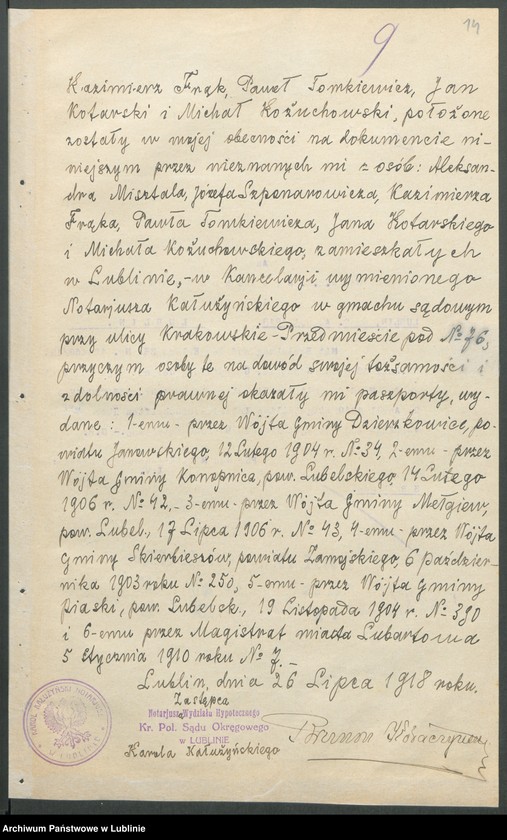 14
9
Kazimierz Frąk, Paweł Tomkiewicz, Jan
Kotarski i Michał Kożuchowski, położone
zostały w mojej obecności na dokumencie ni-
niejszym przez nieznanych mi osób: Aleksan-
dra Misztala, Józefa Szponarowicza, Kazimierza
Frąka, Pawła Tomkiewicza, Jana Kotarskiego
i Michała Kożuchowskiego, zamieszkałych
w Lublinie, - w Kancelaryi wymienionego
Notarjusza Kałużyńskiego w gmachu sądowym
przy ulicy Krakowskie-Przedmieście pod № 76,
przyczym osoby te na dowód swojej tożsamości i
zdolności prawnej okazały mi paszporty, wy-
dane: 1-emu - przez Wójta Gminy Dzierzkowice, po-
wiatu Janowskiego, 12 Lutego 1904 r. № 34, 2-emu - przez
Wójta Gminy Konopnica, pow. Lubelskiego, 14 Lutego
1906 r. № 42, - 3-emu - przez Wójta Gminy Mełgiew,
pow. Lubel., 17 Lipca 1906 r. № 43, 4-emu - przez Wójta
Gminy Skierbieszów, powiatu Zamojskiego, 6 Paździer-
nika 1903 roku № 250, 5-emu - przez Wójta Gminy
Piaski, pow. Lubelsk., 19 Listopada 1904 r. № 390
i 6-emu przez Magistrat miasta Lubartowa
5 Stycznia 1910 roku № 7. -
Lublin, dnia 26 Lipca 1918 roku.
Zastępca
Notarjusz Wydziału Hypotecznego
Kr. Pol. Sądu Okręgowego
w LUBLINIE
Karola Kałużyńskiego
Archiwum Państwowe w Lublinie